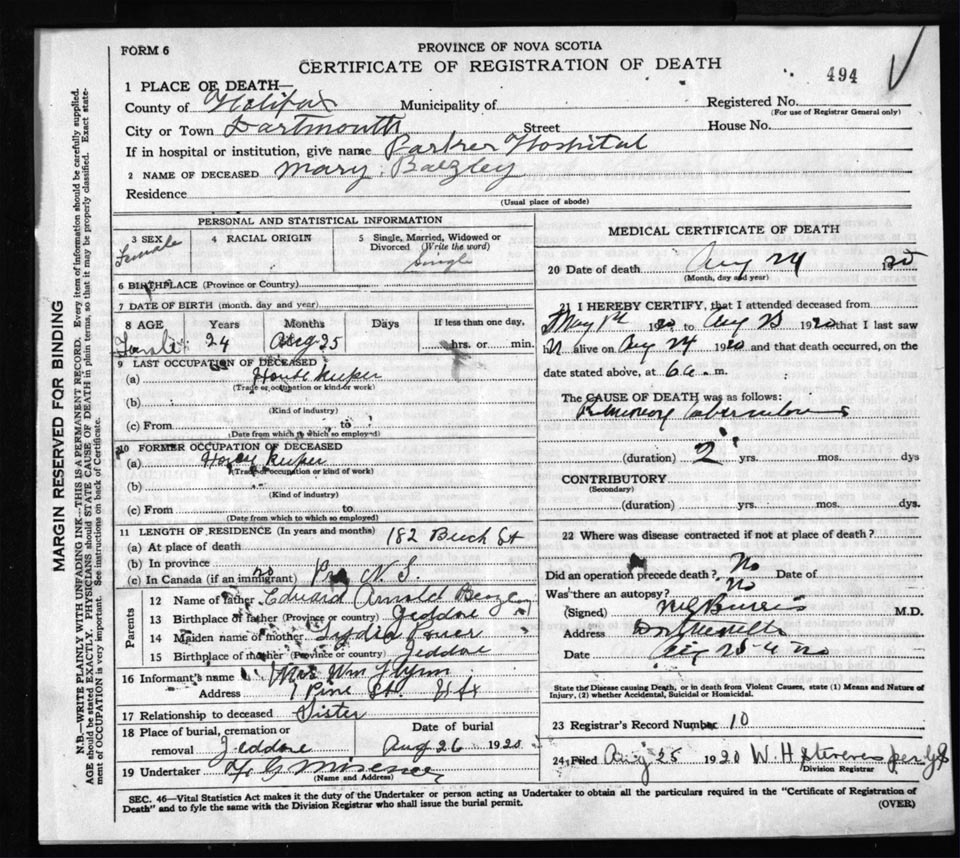 FORM 6
PROVINCE OF NOVA SCOTIA
CERTIFICATE OF REGISTRATION OF DEATH
494
1 PLACE OF DEATH—
County of Halifax Municipality of Registered No.
(For use of Registrar General only)
City or Town Dartmouth Street House No.
If in hospital or institution, give name Parker Hospital
2 NAME OF DECEASED Mary Bazley
Residence
(Usual place of abode)
PERSONAL AND STATISTICAL INFORMATION
3 SEX Female
4 RACIAL ORIGIN
5 Single, Married, Widowed or Divorced (Write the word)
Single
6 BIRTHPLACE (Province or Country)
7 DATE OF BIRTH (month, day and year)
8 AGE Years Months Days If less than one day,
24 Aug 25 hrs. or min.
9 LAST OCCUPATION OF DECEASED
(a) House Keeper
(Trade or occupation or kind of work)
(b)
(Kind of industry)
(c) From to
(Date from which to which so employed)
10 FORMER OCCUPATION OF DECEASED
(a) Keeper
(Trade or occupation or kind of work)
(b)
(Kind of industry)
(c) From to
(Date from which to which so employed)
11 LENGTH OF RESIDENCE (In years and months) 182 St
(a) At place of death
(b) In province
(c) In Canada (if an immigrant) N. S.
Parents
12 Name of father Edward Arnold
13 Birthplace of father (Province or country) Jeddore
14 Maiden name of mother Lydia
15 Birthplace of mother (Province or country) Jeddore
16 Informant's name Mrs Wm Flynn
Address 1 Pine St. Hfx
17 Relationship to deceased Sister
18 Place of burial, cremation or removal Jeddore
Date of burial Aug 26 1920
19 Undertaker
(Name and Address)
MEDICAL CERTIFICATE OF DEATH
20 Date of death Aug 24 1920
(Month, day and year)
21 I HEREBY CERTIFY, that I attended deceased from
May 1st 1920 to Aug 23 1920 that I last saw
h alive on Aug 24 1920 and that death occurred, on the
date stated above, at 6 a. m.
The CAUSE OF DEATH was as follows:
Pulmonary tuberculosis
(duration) 2 yrs. mos. dys
CONTRIBUTORY
(Secondary)
(duration) yrs. mos. dys.
22 Where was disease contracted if not at place of death?
Did an operation precede death? No Date of
Was there an autopsy? No
(Signed) M.D.
Address Dartmouth
Date Aug 25
State the Disease causing Death, or in death from Violent Causes, state (1) Means and Nature of Injury, (2) whether Accidental, Suicidal or Homicidal.
23 Registrar's Record Number 10
24 Filed Aug 25 1920 W. H. Stevens per
Division Registrar
SEC. 46—Vital Statistics Act makes it the duty of the Undertaker or person acting as Undertaker to obtain all the particulars required in the "Certificate of Registration of
Death" and to fyle the same with the Division Registrar who shall issue the burial permit. (OVER)
MARGIN RESERVED FOR BINDING
N.B.—WRITE PLAINLY WITH UNFADING INK—THIS IS A PERMANENT RECORD. Every item of information should be carefully supplied.
AGE should be stated EXACTLY. PHYSICIANS should STATE CAUSE OF DEATH in plain terms, so that it may be properly classified. Exact statement of OCCUPATION is very important. See instructions on back of Certificate.